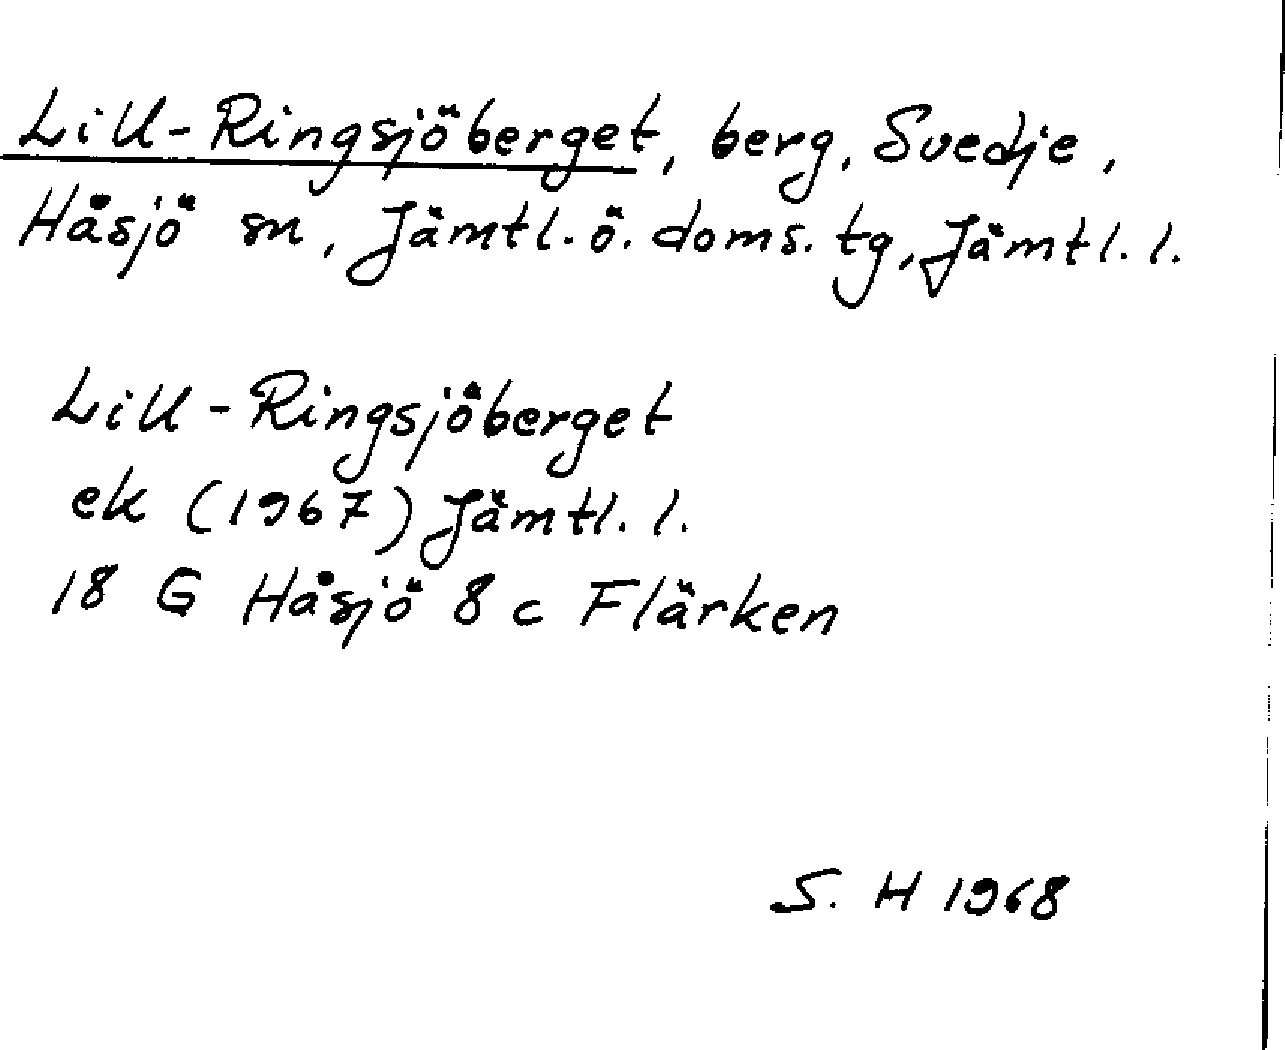 Lill-Ringsjöberget, berg, Svedje,
Håsjö sn, Jämtl. ö. doms. tg, Jämtl. l.
Lill-Ringsjöberget
ek (1967) Jämtl. l.
18 G Håsjö 8 c Flärken
S. H 1968